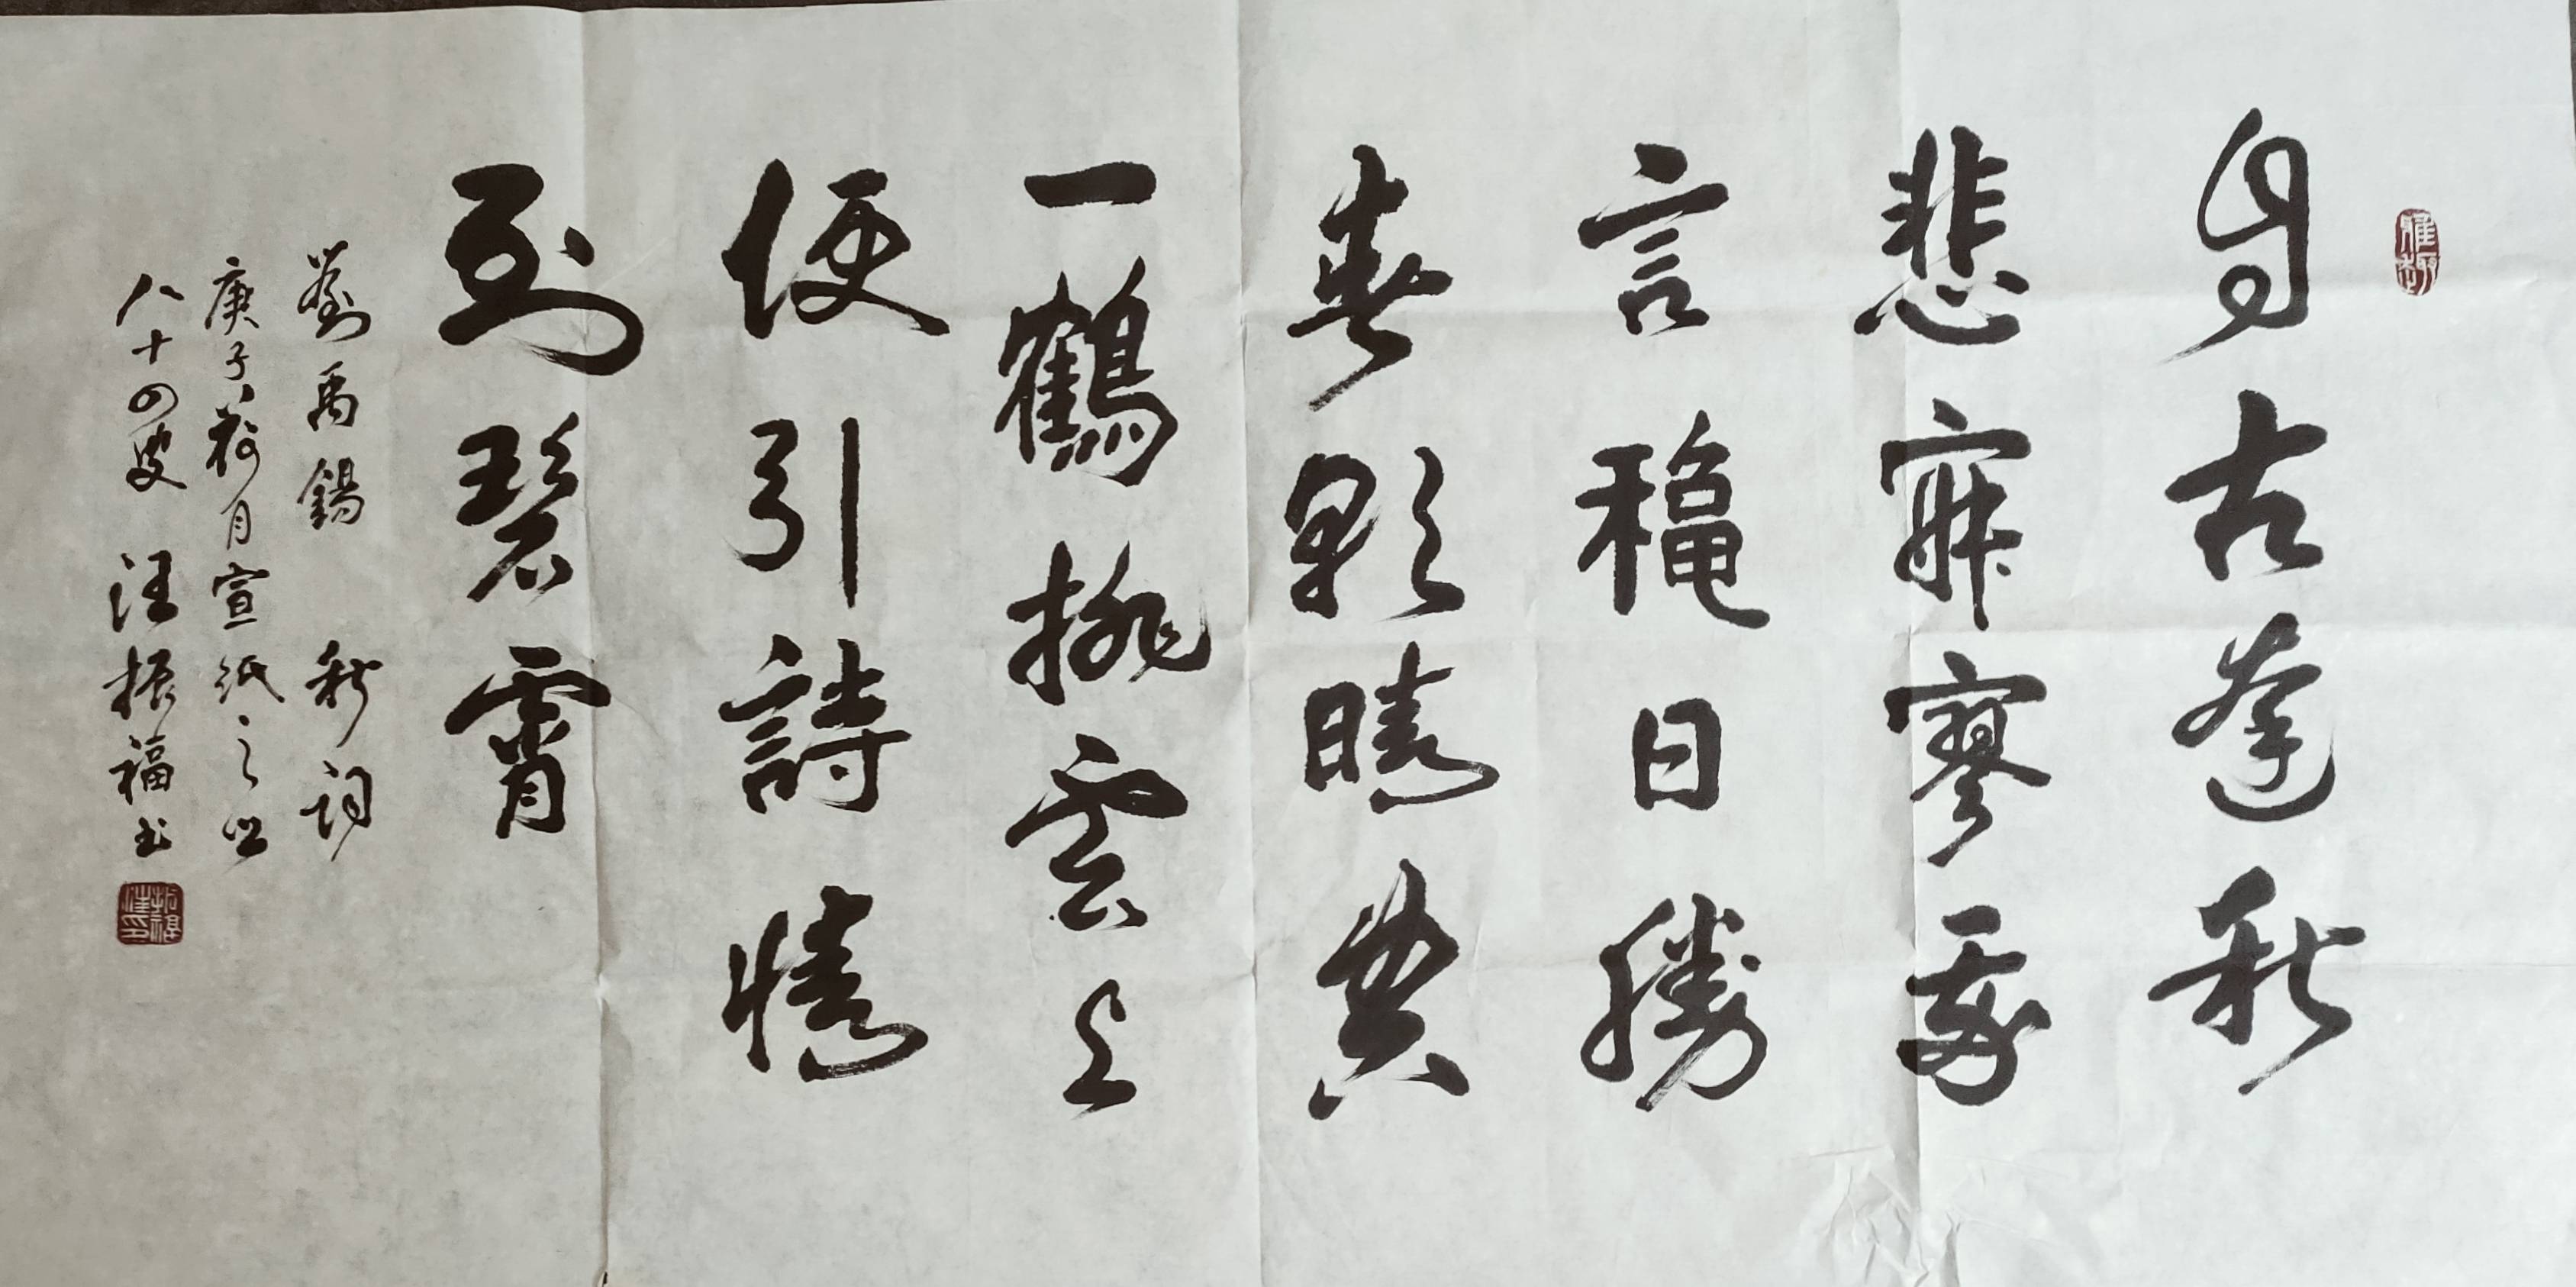 雅趣
自古逢秋
悲寂寥我
言穐日勝
春朝晴空
一鶴排雲上
便引詩情
到碧霄
劉禹錫 秋詞
庚子荷月宣紙之鄉
八十四叟 汪振福书